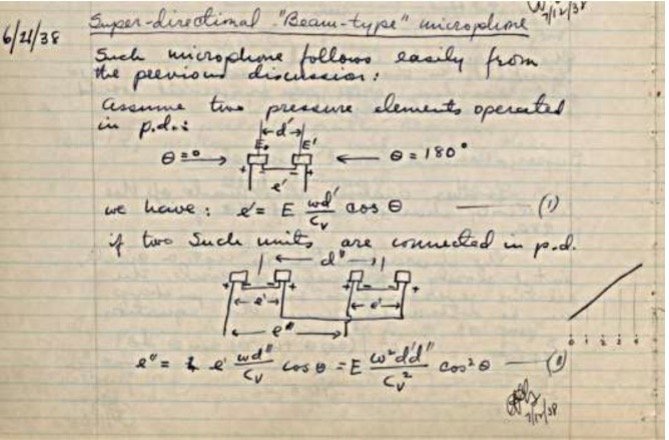 6/21/38
Super-directional "Beam-type" microphone
7/12/38
Such microphone follows easily from
the previous discussion:
Assume two pressure elements operated
in p.d.:
d'
E₀ E'
θ=0 θ = 180°
+ - - +
e'
we have: e' = E ωd'/c_v cos θ (1)
if two such units are connected in p.d.
d"
+ - - + + - - +
e' e'
e"
e" = e' ωd"/c_v cos θ = E ω²d'd"/c_v² cos² θ (11)
0 1 2 3 4
7/12/38